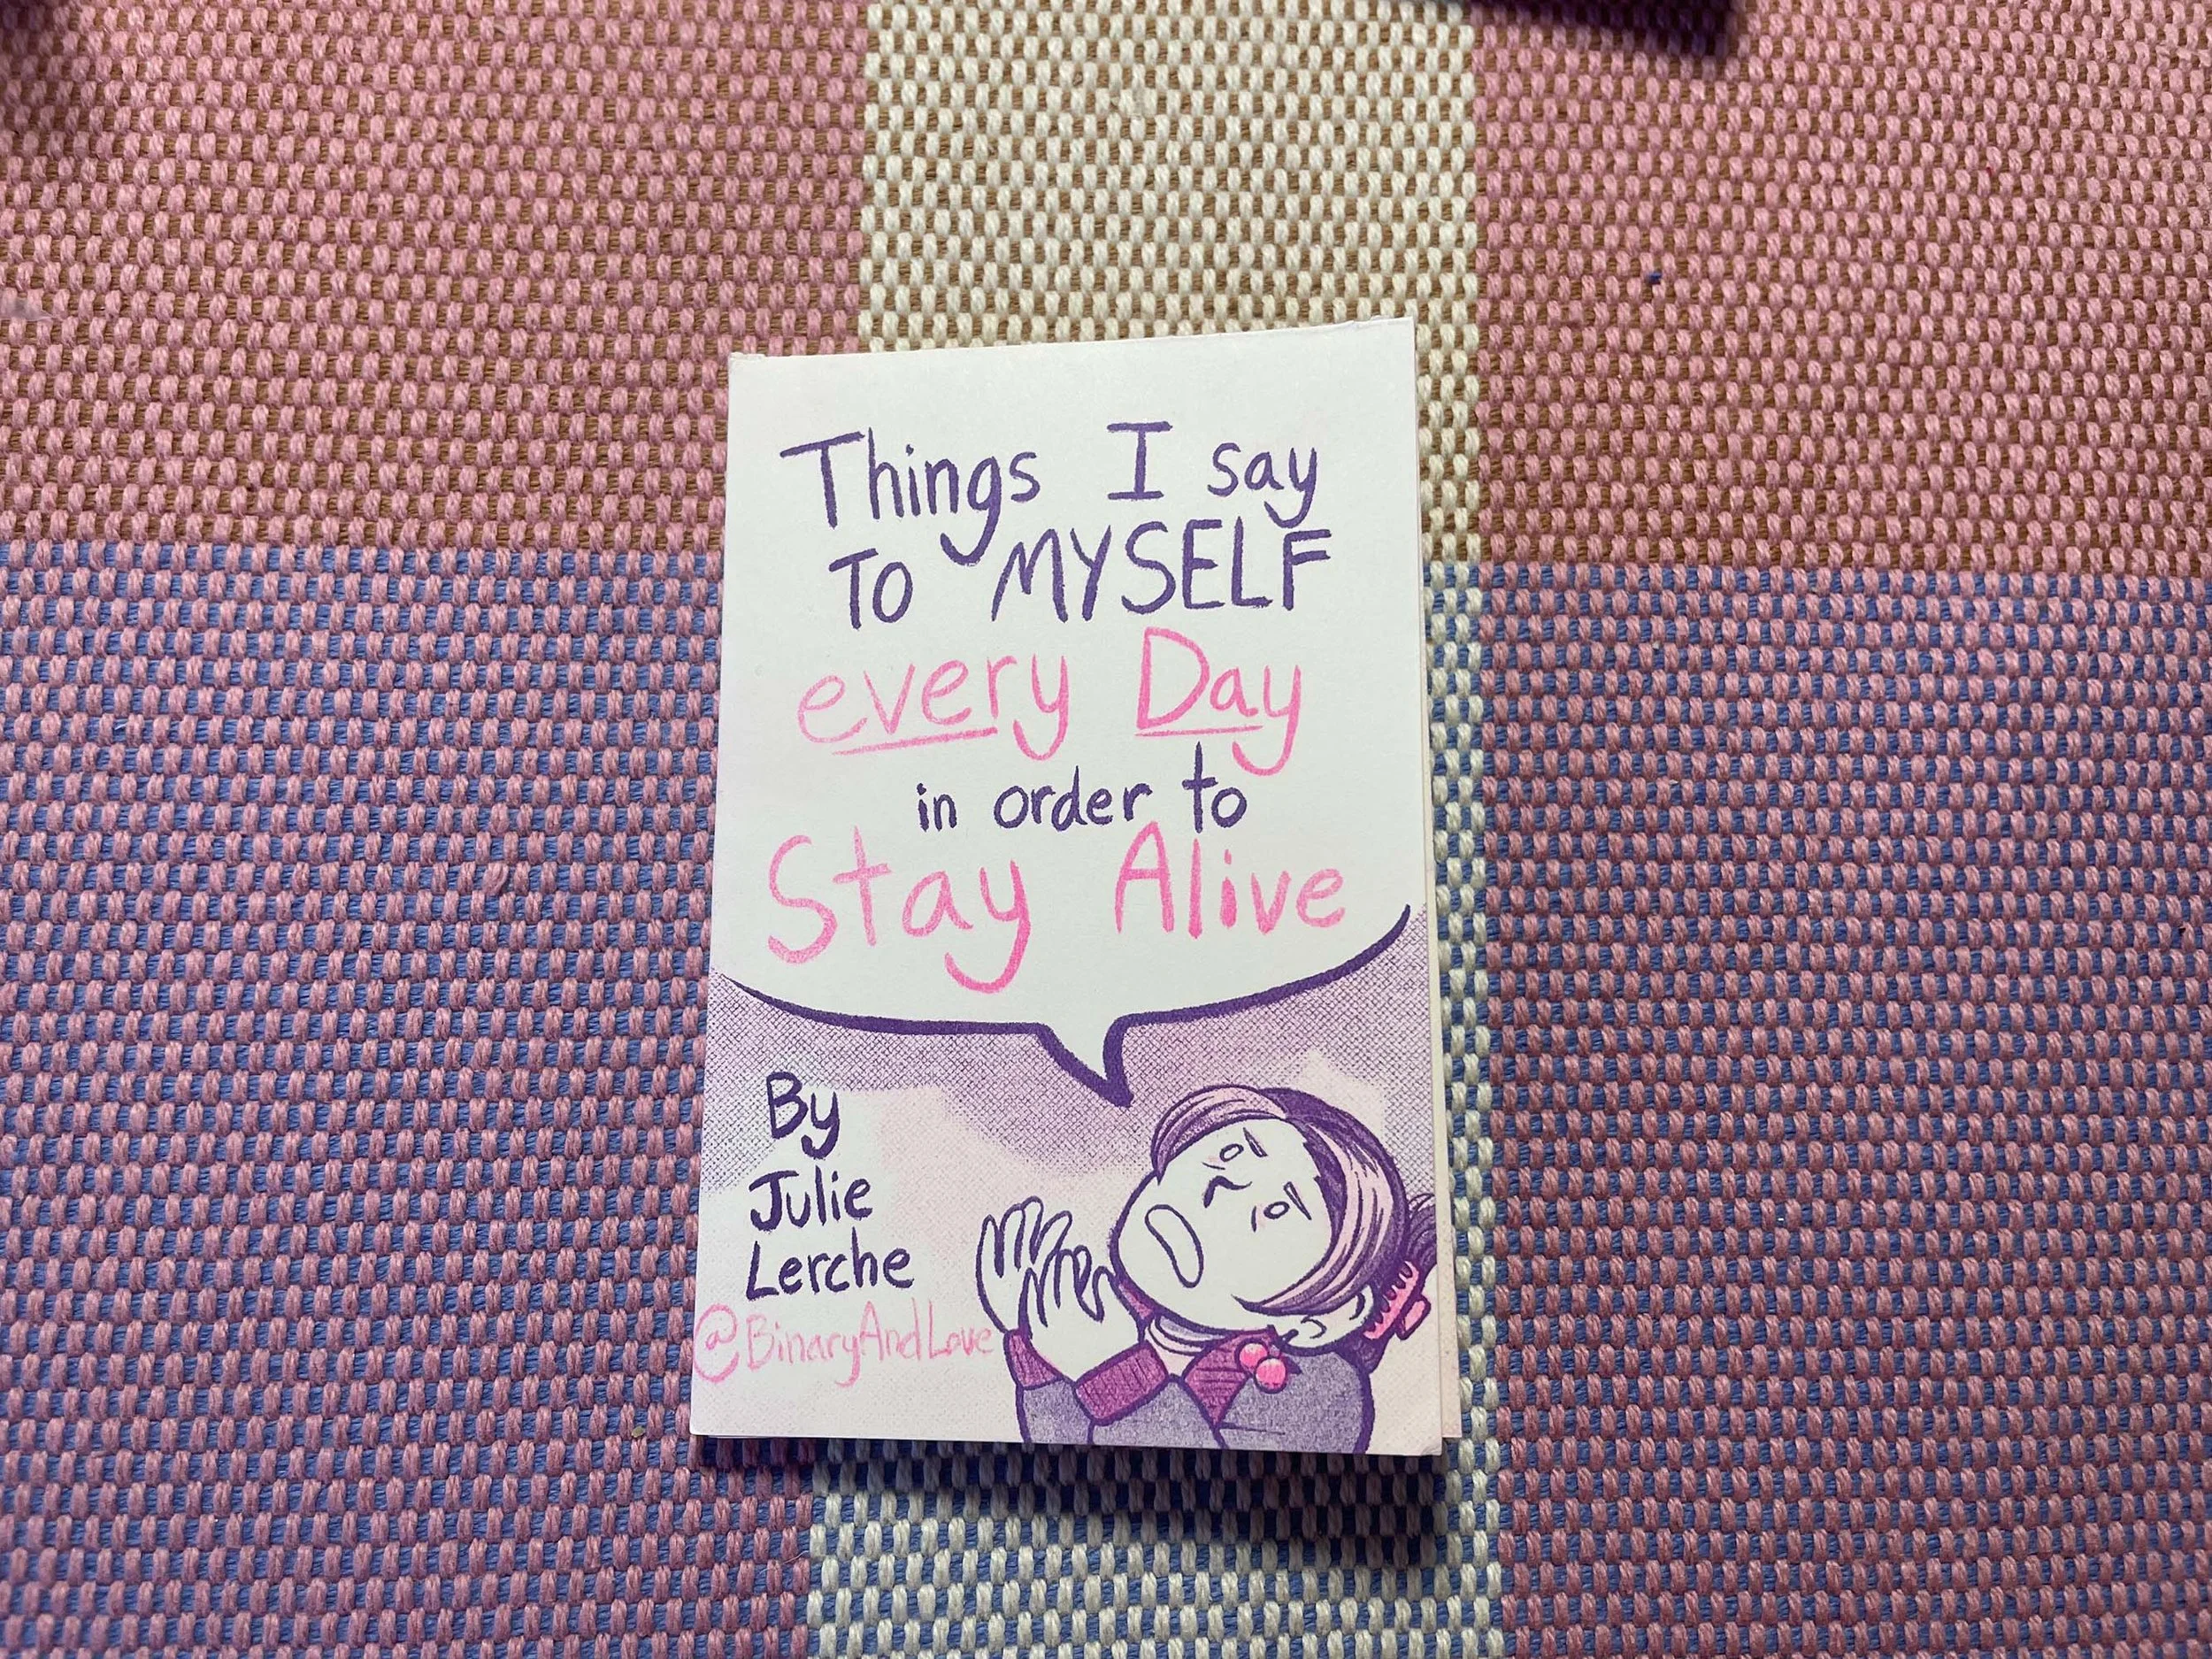 Things I say
TO MYSELF
every Day
in order to
Stay Alive
By
Julie
Lerche
@BinaryAndLove